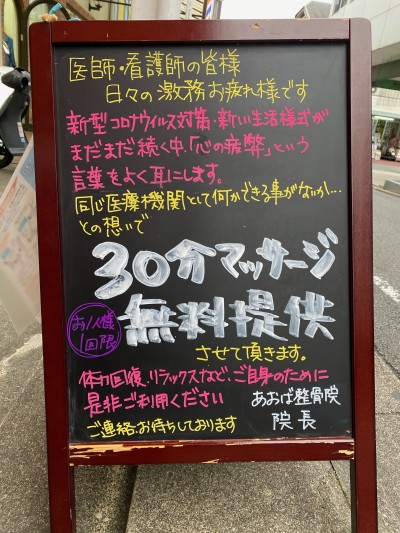 医師・看護師の皆様
日々の激務お疲れ様です
新型コロナウイルス対策・新しい生活様式が
まだまだ続く中、「心の疲弊」という
言葉をよく耳にします。
同じ医療機関として何かできる事がないか…
との想いで
30分マッサージ
お1人様
1回限
無料提供
させて頂きます。
体力回復、リラックスなど、ご自身のために
是非ご利用ください
あおば整骨院
院長
ご連絡お待ちしております